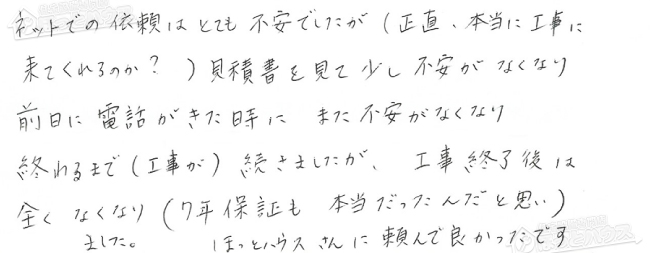 ネットでの依頼はとても不安でしたが（正直、本当に工事に
来てくれるのか？）見積書を見て少し不安がなくなり
前日に電話がきた時に また不安がなくなり
終わるまで（工事が）続きましたが、工事終了後は
全くなくなり（7年保証も 本当だったんだと思い）
ました。 ほっとハウスさんに頼んで良かったです